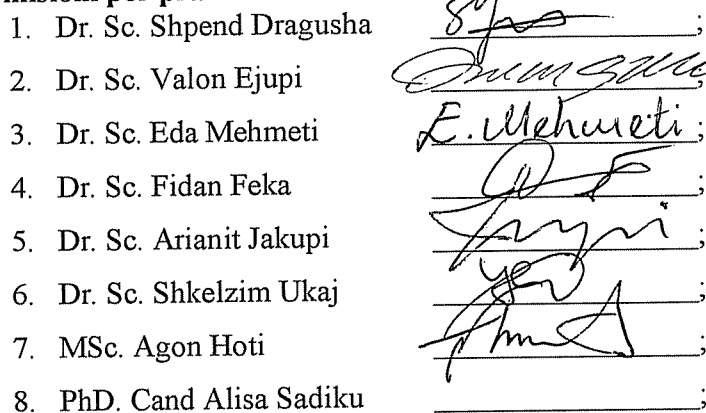 1. Dr. Sc. Shpend Dragusha ;
2. Dr. Sc. Valon Ejupi ;
3. Dr. Sc. Eda Mehmeti E. Mehmeti ;
4. Dr. Sc. Fidan Feka ;
5. Dr. Sc. Arianit Jakupi ;
6. Dr. Sc. Shkelzim Ukaj ;
7. MSc. Agon Hoti ;
8. PhD. Cand Alisa Sadiku ;